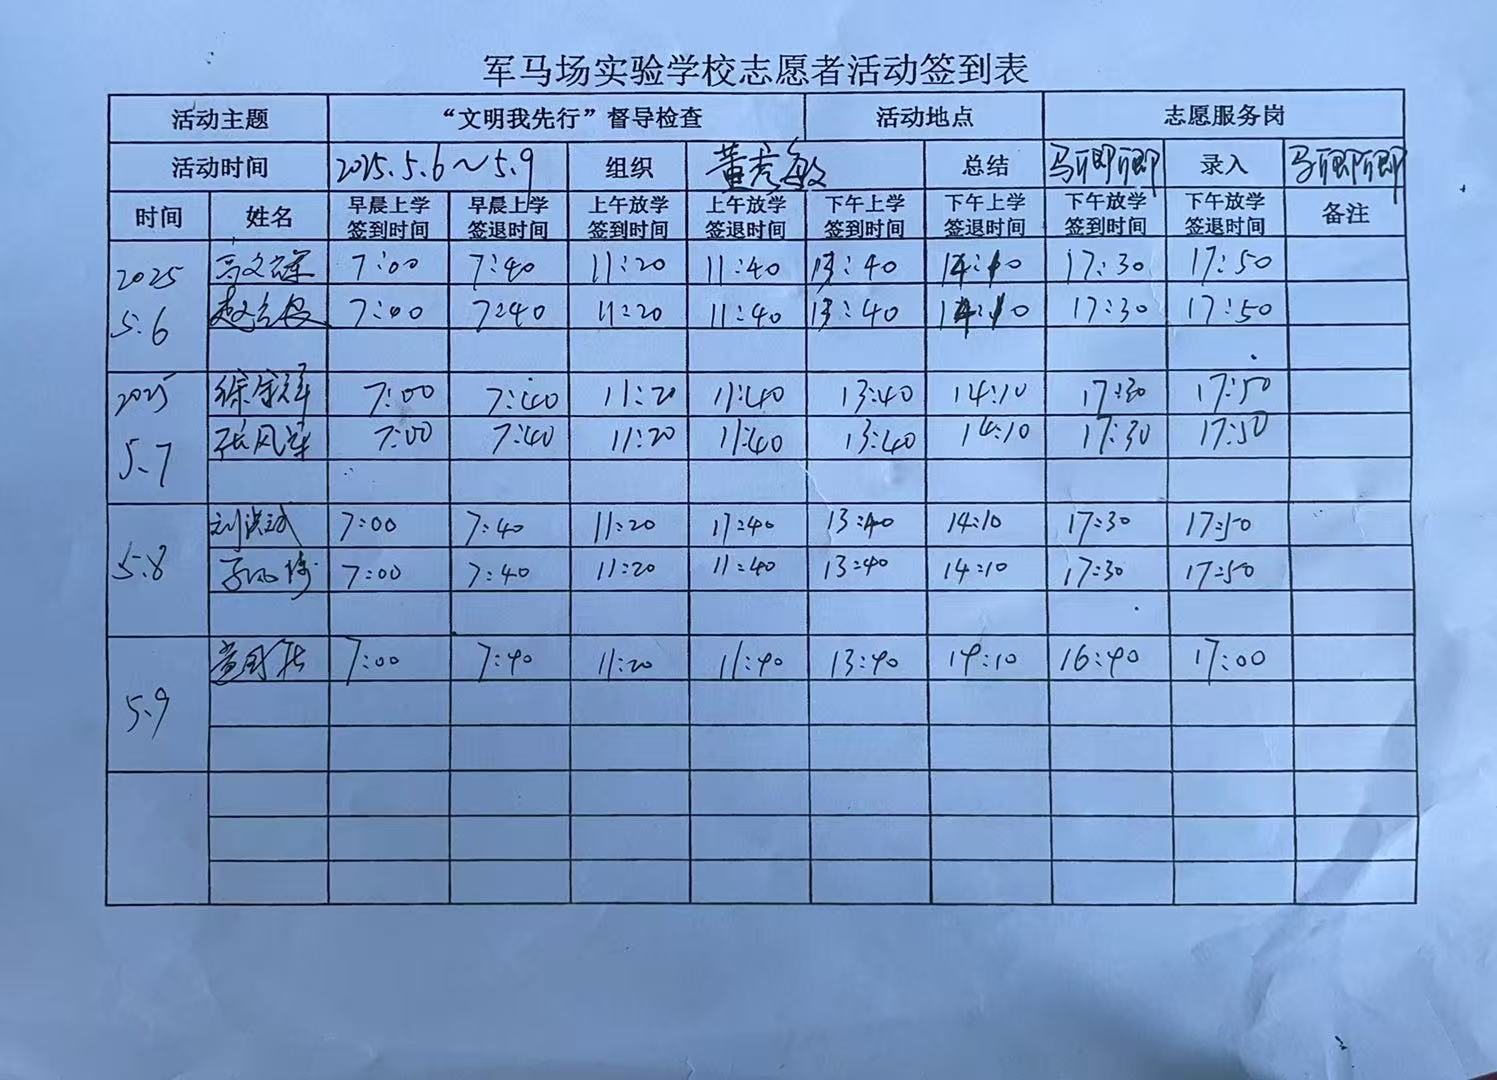 军马场实验学校志愿者活动签到表
活动主题 “文明我先行”督导检查 活动地点 志愿服务岗
活动时间 2025.5.6~5.9 组织 黄彦敏 总结 马卿卿 录入 马卿卿
时间 姓名 早晨上学签到时间 早晨上学签退时间 上午放学签到时间 上午放学签退时间 下午上学签到时间 下午上学签退时间 下午放学签到时间 下午放学签退时间 备注
2025 7:00 7:40 11:20 11:40 13:40 14:10 17:30 17:50
5.6 7:00 7:40 11:20 11:40 13:40 14:10 17:30 17:50
2025 7:00 7:40 11:20 11:40 13:40 14:10 17:30 17:50
5.7 张风军 7:00 7:40 11:20 11:40 13:40 14:10 17:30 17:50
5.8 刘洪斌 7:00 7:40 11:20 11:40 13:40 14:10 17:30 17:50
7:00 7:40 11:20 11:40 13:40 14:10 17:30 17:50
5.9 7:00 7:40 11:20 11:40 13:40 14:10 16:40 17:00